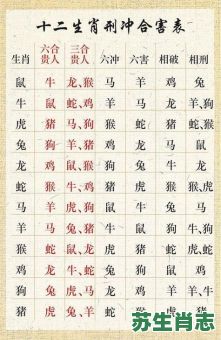 十二生肖刑冲合害表
生肖 六合贵人 三合贵人 六冲 六害 相破 相刑
鼠 牛 龙、猴 马 羊 鸡 兔
牛 鼠 蛇、鸡 羊 马 龙
虎 猪 马、狗 猴 蛇 猪
兔 狗 羊、猪 鸡 龙 马 鼠
龙 鸡 鼠、猴 狗 兔 牛 龙
蛇 猴 牛、鸡 猪 虎 猴
马 羊 虎、狗 鼠 牛 兔 马
羊 马 兔、猪 牛 鼠 狗 牛、狗
猴 蛇 鼠、龙 虎 猪 蛇
鸡 龙 牛、蛇 兔 狗 鼠 鸡
狗 兔 虎、马 龙 鸡 羊 牛、羊
猪 虎 兔、羊 蛇 猴 虎 猪
苏生肖志